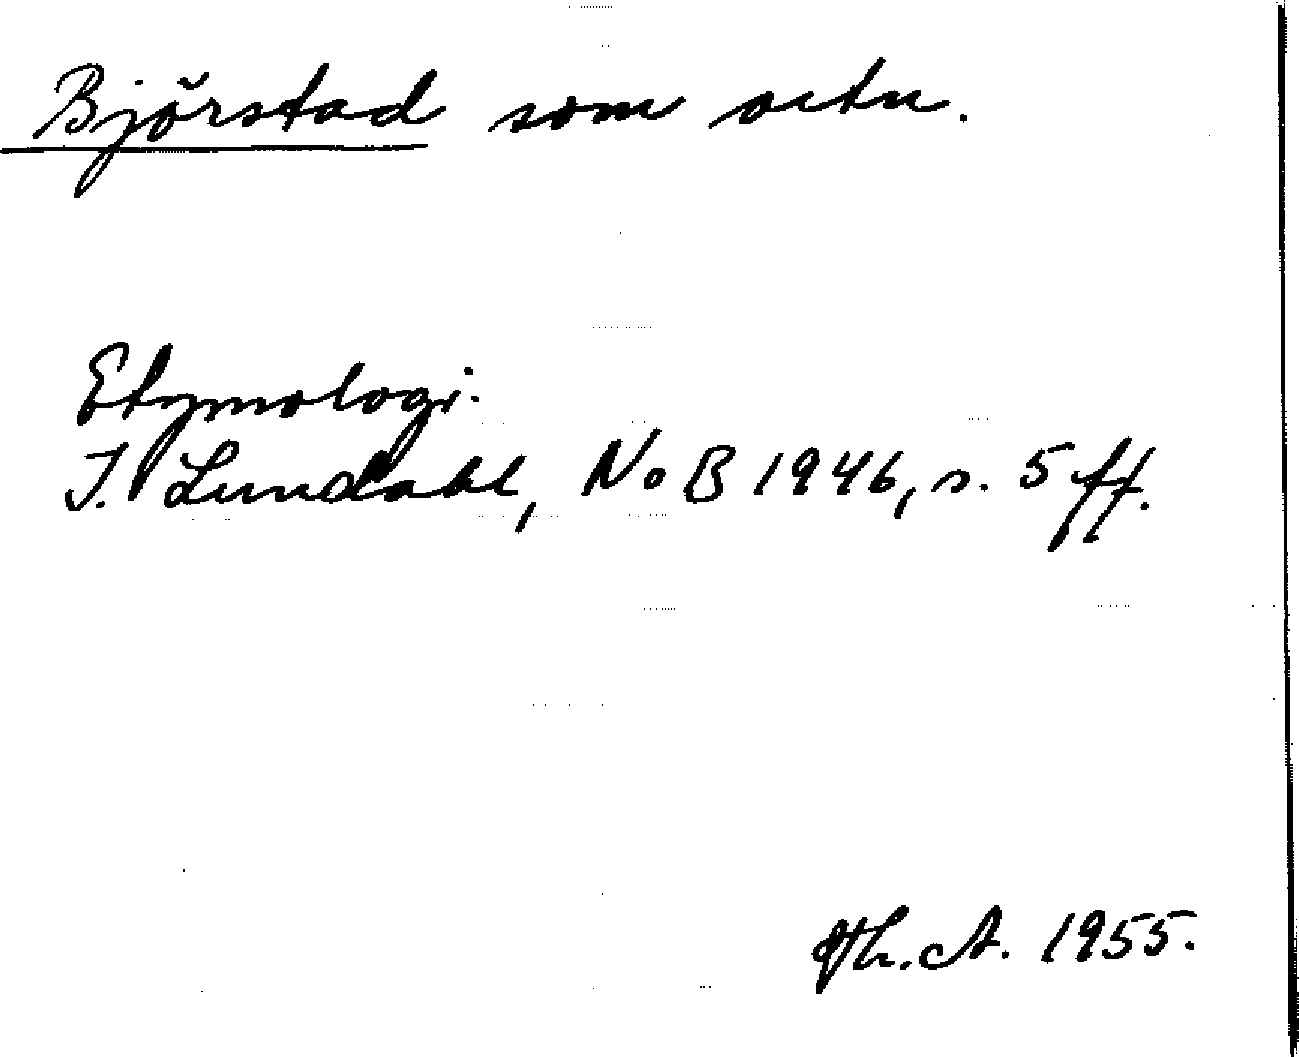 Björstad som ortn.
Etymologi.
I. Lundahl, NoB 1946, s. 5 ff.
Th. A. 1955.